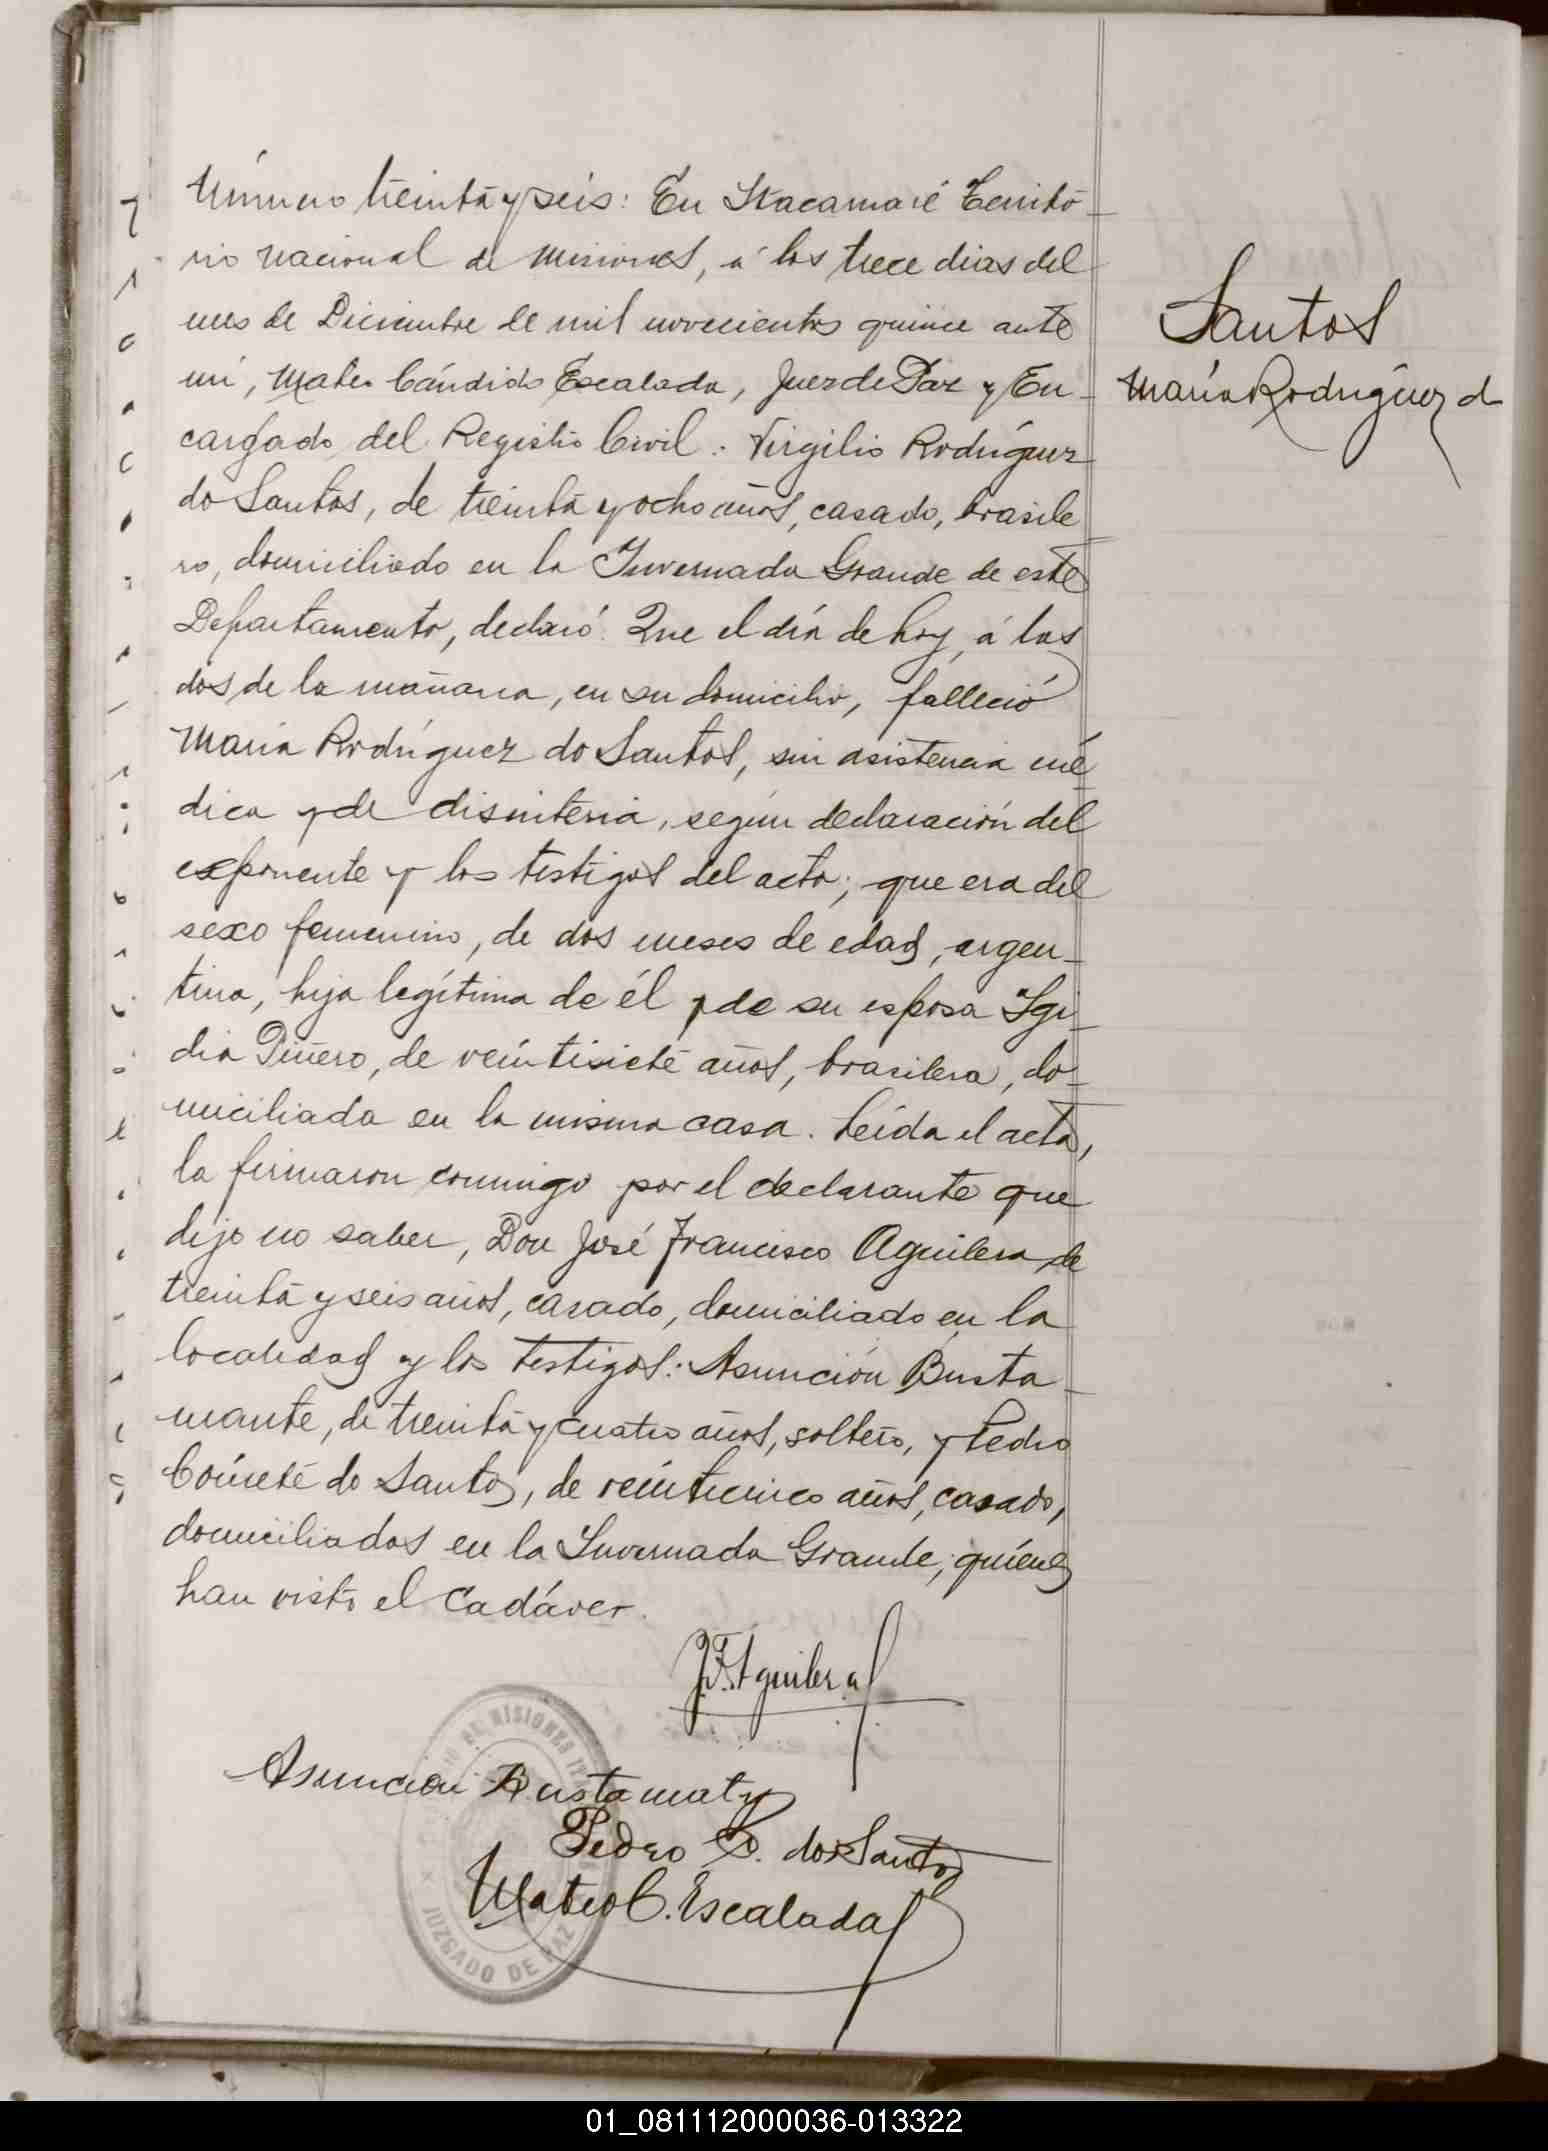 Número treinta y seis: En Itacaruaré Territo-
rio Nacional de Misiones, á los trece dias del
mes de Diciembre de mil novecientos quince ante
mí, Mateo Cándido Escalada, Juez de Paz y En-
cargado del Registro Civil: Virgilio Rodríguez
do Santos, de treinta y ocho años, casado, brasile
ro, domiciliado en la Invernada Grande de este
Departamento, declaró: Que el día de hoy, á las
dos de la mañana, en su domicilio, falleció
María Rodríguez do Santos, sin asistencia mé
dica y de disinteria, según declaración del
exponente y los testigos del acto; que era del
sexo femenino, de dos meses de edad, argen-
tina, hija legítima de él y de su esposa Igi-
dia Piñero, de veintisiete años, brasilera, do-
miciliada en la misma casa. Leída el acta,
la firmaron conmigo por el declarante que
dijo no saber, Don José Francisco Aguilera, de
treinta y seis años, casado, domiciliado en la
localidad y los testigos: Asunción Busta-
mante, de treinta y cuatro años, soltero, y Pedro
do Santos, de veinticinco años, casado,
domiciliados en la Invernada Grande; quíenes
han visto el cadáver.
Santos
María Rodríguez d
J.F. Aguilera
Asuncion Bustamate
Pedro do Santos
Mateo C. Escalada
DE MISIONES
JUZGADO DE PAZ
01_081112000036-013322